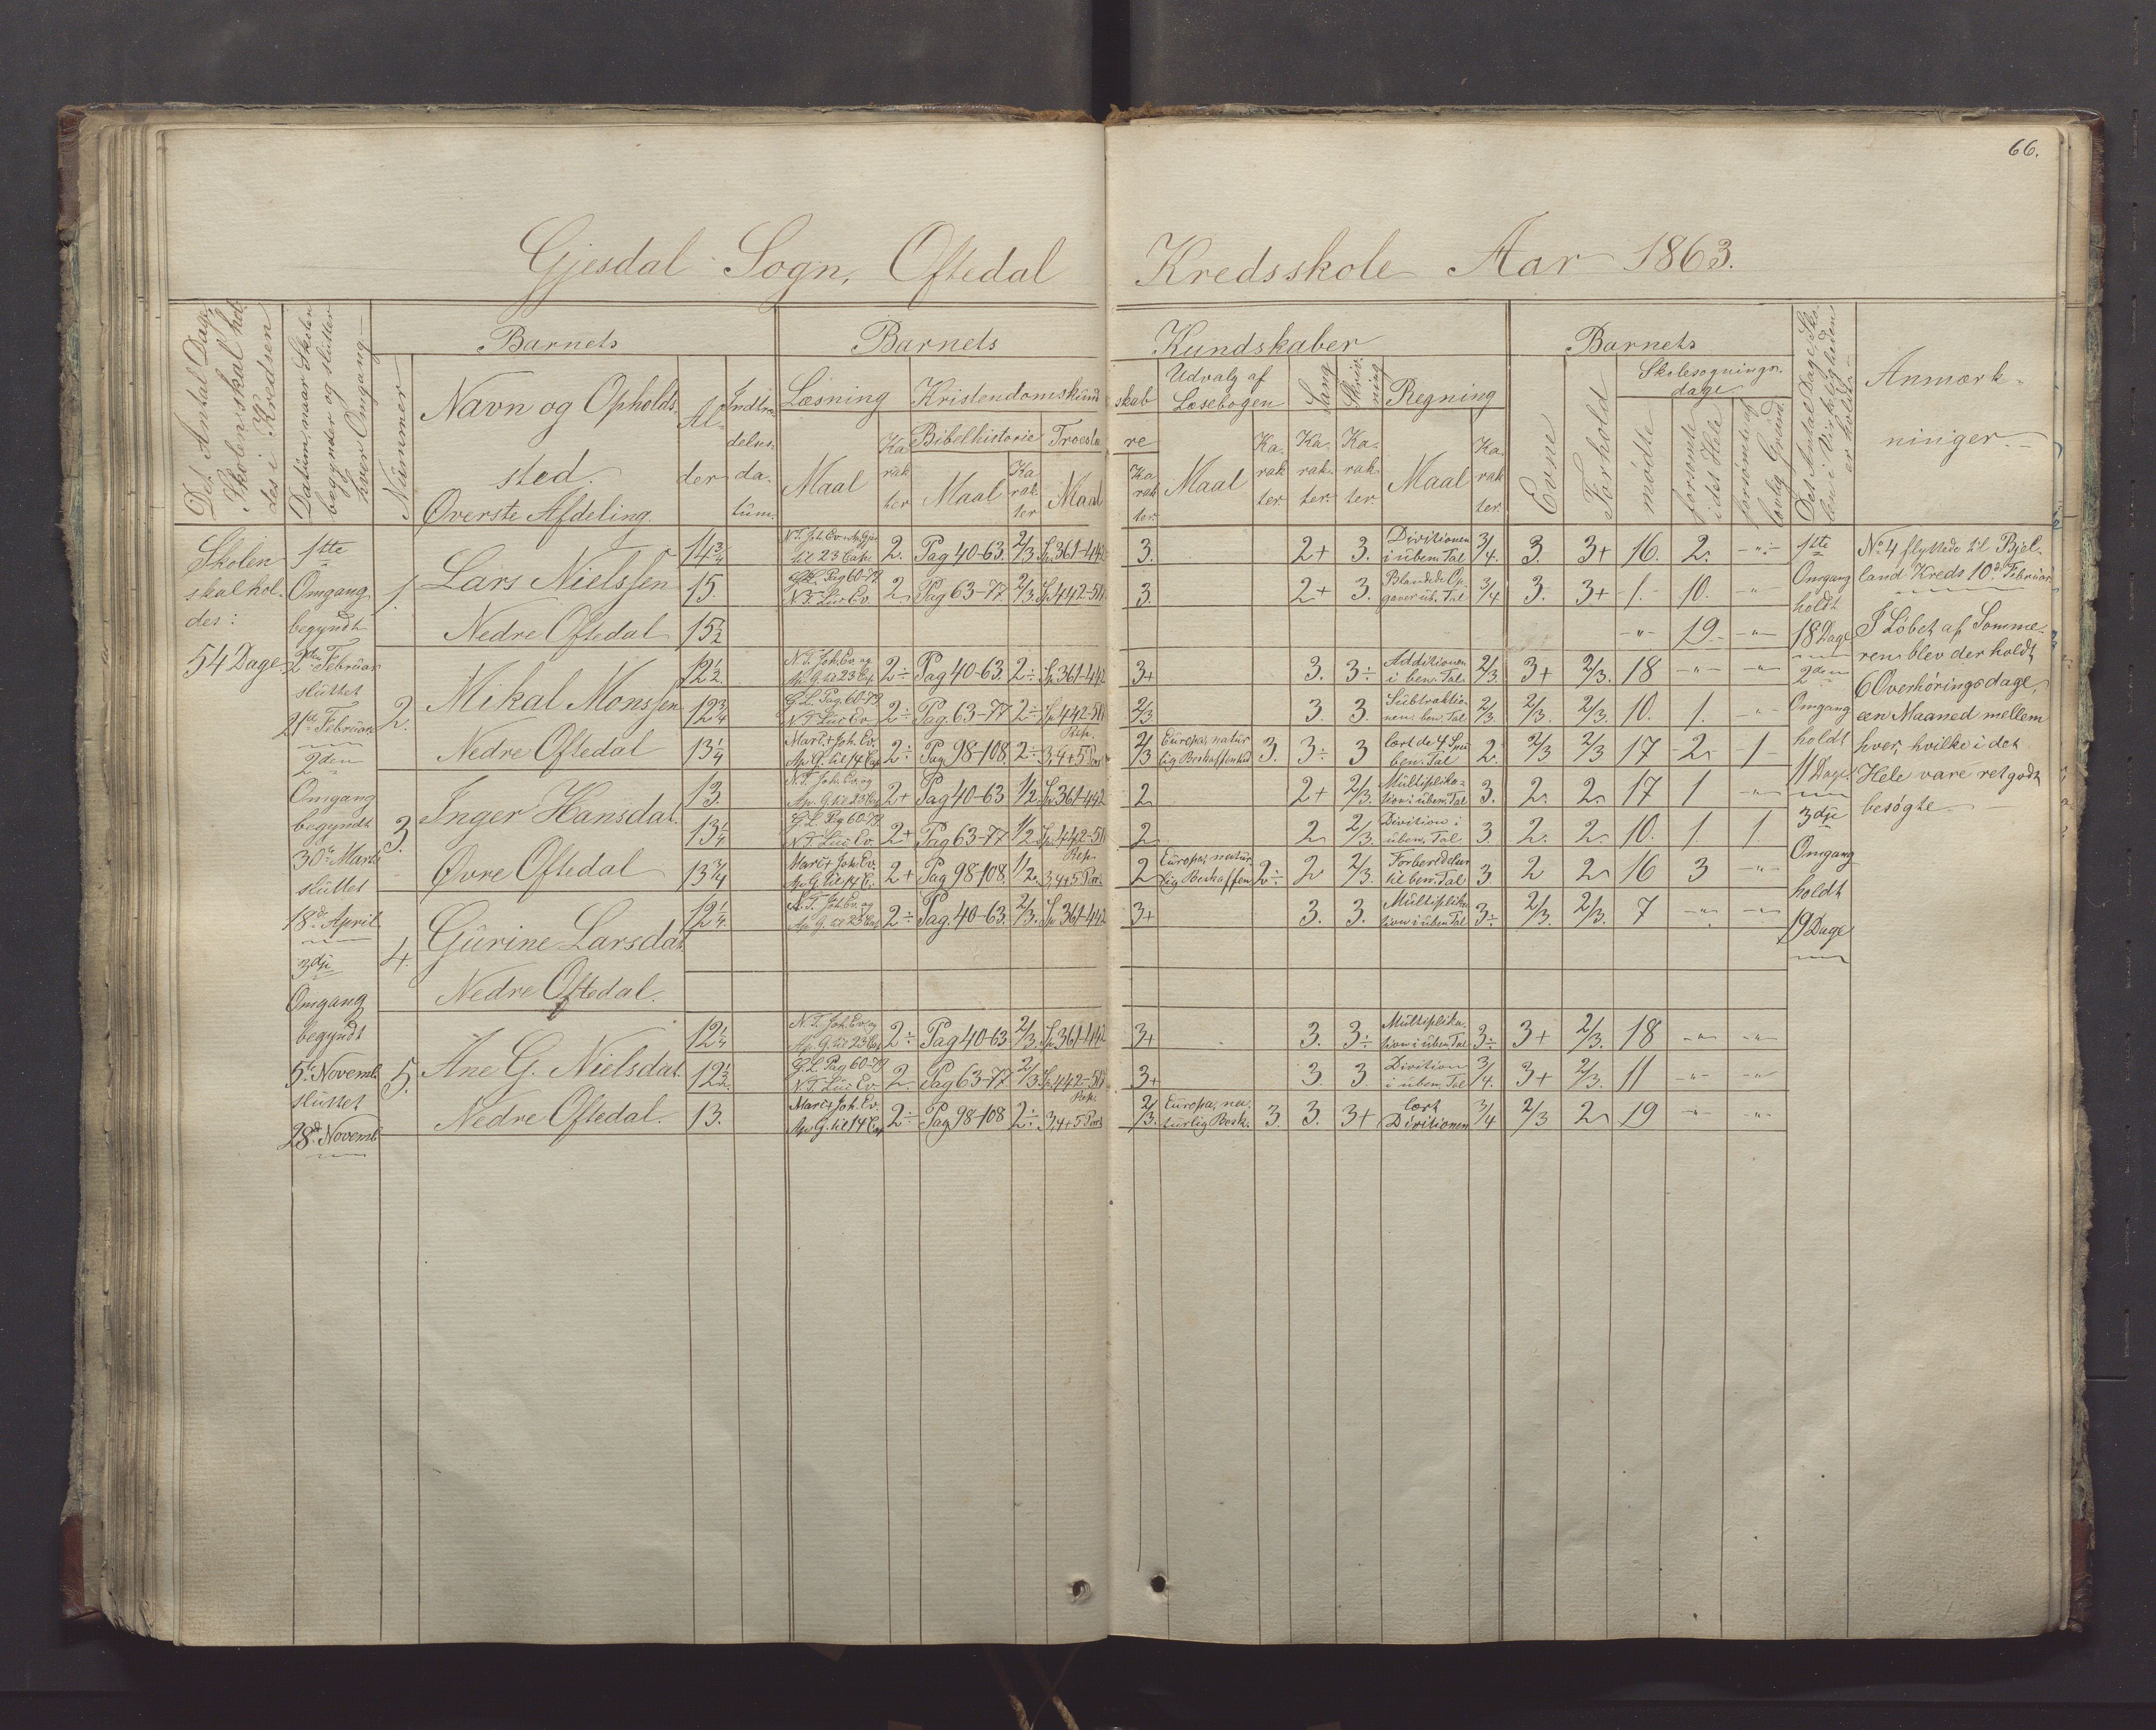 66.
Gjesdal Sogn, Oftedal Kredsskole Aar 1863.
Det Antal Dage, Skolen skal holdes i Kredsen
Datum, naar Skolen begynder og slutter hver Omgang
Nummer
Barnets
Navn og Opholds-
sted.
Øverste Afdeling.
Al-
der
Indtræ-
delses-
da-
tum.
Barnets Kundskaber
Læsning
Maal
Ka
rak
ter
Kristendomskundskab
Bibelhistorie
Maal
Ka
rak
ter
Troeslære
Maal
Ka
rak
ter.
Udvalg af
Læsebogen
Maal
Ka-
rak
ter.
Sang
Ka-
rak-
ter.
Skriv-
ning
Ka-
rak-
ter.
Regning
Maal
Ka-
rak
ter.
Barnets
Evne
Forhold
Skolesøgnings-
dage
mødte
forsømte i det Hele
forsømte af lovlig Grund
Det Antal Dage, Skolen i Virkeligheden er holdt
Anmærk-
ninger.
Skolen
skal hol-
des:
54 Dage
1ste
Omgang
begyndt
2den Februar
sluttet
21de Februar
2den
Omgang
begyndt
30te Marts
sluttet
18de April
3dje
Omgang
begyndt
5te Novemb.
sluttet
28de Novemb.
1. Lars Nielssen
Nedre Oftedal
14 3/4 N.T. Joh. Ev. og Ap. Gjer. til 23 Cap. 2. Pag 40-63. 2/3 Sp. 361-442 3. 2+ 3. Divitionen i uben. Tal 3/4. 3. 3+ 16. 2. -"-
15. G.L. Pag 60-79. N.T. Luc. Ev. 2. Pag 63-77. 2/3. Sp. 442-511 3. 2+ 3. Blandede Opgaver ub. Tal 3/4 3. 3+ 1. 10. "
15 1/2 -"- 19. -"-
2. Mikal Monssen
Nedre Oftedal
12 1/2. N.T. Joh. Ev. og Ap. G. til 23 Cap. 2÷ Pag 40-63. 2÷ Sp. 361-442 3+ 3. 3÷ Additionen i ben. Tal. 2/3. 3+ 2/3. 18 -"- -"-
12 3/4 G.L. Pag. 60-79. N.T. Luc. Ev. 2÷ Pag. 63-77 2÷ Sp. 442-511 2/3 3. 3. Subtraktionen i ben. Tal 2/3. 2/3. 2/3. 10. 1. "
13 1/4 Marc. + Joh. Ev. Ap. G. til 14 Cap 2÷ Pag. 98-108. 2÷ Rep. 3, 4 + 5 Part 2/3 Europas naturlig Beskaffenhed 3. 3÷ 3 lært de 4 Spec. ben. Tal 2. 2/3 2/3 17 2 1
3. Inger Hansdat.
Øvre Oftedal
13. N.T. Joh. Ev. og Ap. G. til 23 Cap 2+ Pag 40-63 1/2 Sp. 361-442 2 2+ 2/3. Multiplikation i uben. Tal 3. 2. 2. 17 1 -"-
13 1/4 G.L. Pag 60-79. N.T. Luc. Ev. 2+ Pag 63-77 1/2 Sp. 442-511 2 2 2/3. Divition i uben. Tal 3. 2. 2. 10. 1. 1.
13 3/4 Marc. + Joh. Ev. Ap. G. til 14 C. 2+ Pag 98-108. 1/2. Rep. 3, 4 + 5 Part. 2 Europas naturlig Beskaffen. 2÷ 2 2/3. Forberedelser til ben. Tal 3. 2 2 16 3 -"-
4. Gurine Larsdat.
Nedre Oftedal.
12 1/4. N.T. Joh. Ev. og Ap. G. til 23 Cap. 2÷ Pag. 40-63. 2/3. Sp. 361-442 3+ 3. 3. Multiplikation i uben Tal 3÷ 2/3. 2/3. 7 -"- -"-
5. Ane G. Nielsdat.
Nedre Oftedal.
12 1/4 N.T. Joh. Ev. og Ap. G. til 23 Cap 2÷ Pag 40-63 2/3. Sp. 361-442 3+ 3. 3÷ Multiplikation i uben Tal 3÷ 3+ 2/3. 18 -"- -"-
12 1/2. G.L. Pag 60-79 N.T. Luc. Ev. 2 Pag 63-77 2/3. Sp. 442-511 3+ 3. 3 Divition i uben. Tal 3/4. 3+ 2/3. 11 -"- -"-
13. Marc + Joh. Ev. Ap. G. til 14 Cap 2÷ Pag. 98-108 2÷ Rep. 3, 4 + 5 Part 2/3. Europas naturlig Besk. 3. 3. 3+ lært Divitionen 3/4 2/3 2 19 -"- -"-
1ste
Omgang
holdt
18 Dage
2den
Omgang
holdt
11 Dage
3dje
Omgang
holdt
19 Dage
No 4 flyttede til Bjel-
land Kreds 10de Februar
I Løbet af Somme-
ren blev der holdt
6 Overhøringsdage,
een Maaned mellem
hver, hvilke i det
Hele vare ret godt
besøgte